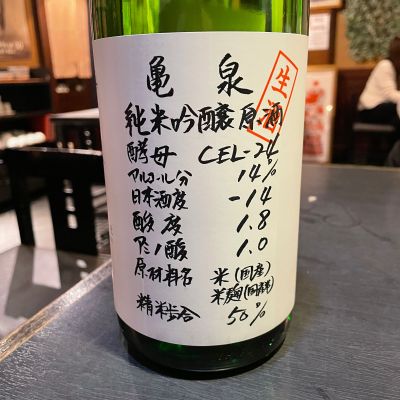 亀泉
生酒
純米吟醸原酒
酵母 CEL-24
アルコール分 14%
日本酒度 -14
酸度 1.8
アミノ酸 1.0
原材料名 米(国産)
米麹(国産米)
精米歩合 50%